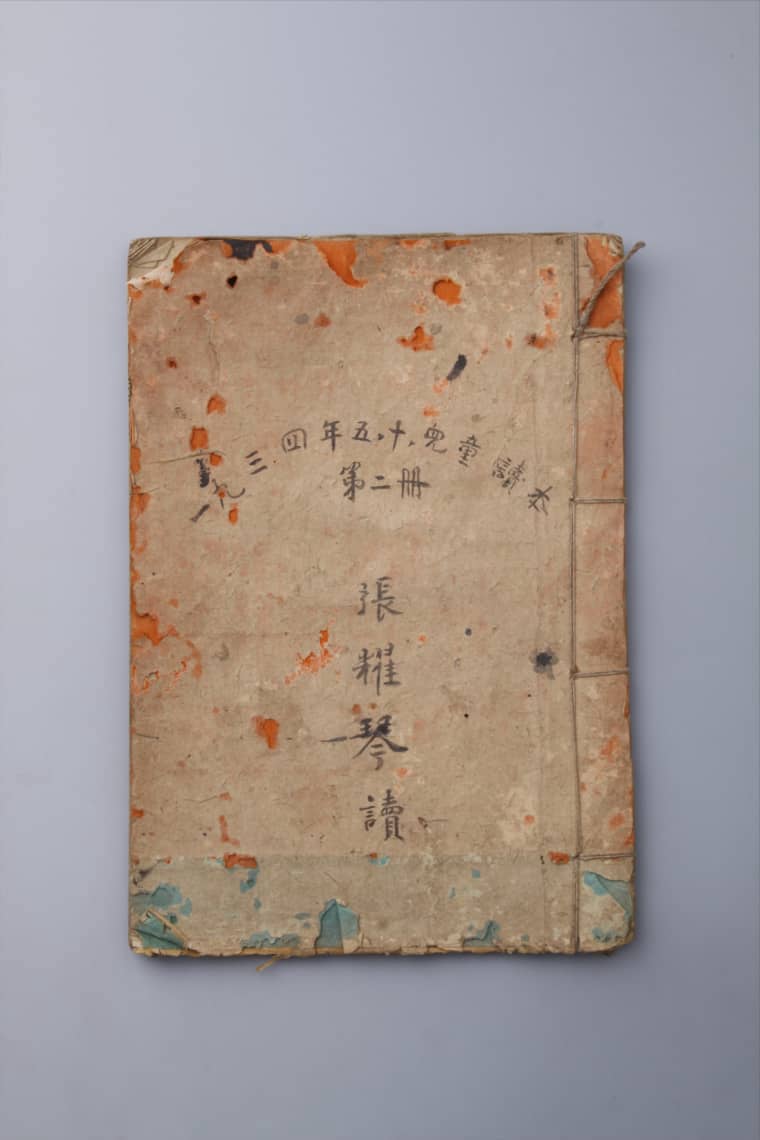 一九三四年五.十.兒童讀本
第二册
張耀琴讀